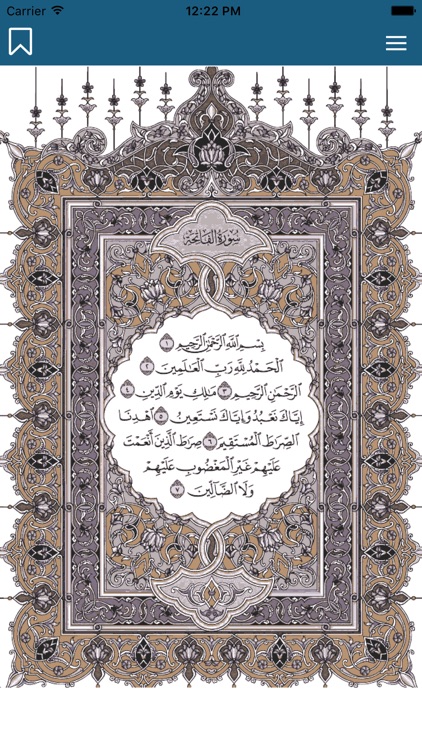 Carrier 12:22 PM
سُورَةُ الْفَاتِحَةِ
بِسْمِ اللَّهِ الرَّحْمَٰنِ الرَّحِيمِ ١
الْحَمْدُ لِلَّهِ رَبِّ الْعَالَمِينَ ٢
الرَّحْمَٰنِ الرَّحِيمِ ٣ مَالِكِ يَوْمِ الدِّينِ ٤
إِيَّاكَ نَعْبُدُ وَإِيَّاكَ نَسْتَعِينُ ٥ اهْدِنَا
الصِّرَاطَ الْمُسْتَقِيمَ ٦ صِرَاطَ الَّذِينَ أَنْعَمْتَ
عَلَيْهِمْ غَيْرِ الْمَغْضُوبِ عَلَيْهِمْ
وَلَا الضَّالِّينَ ٧